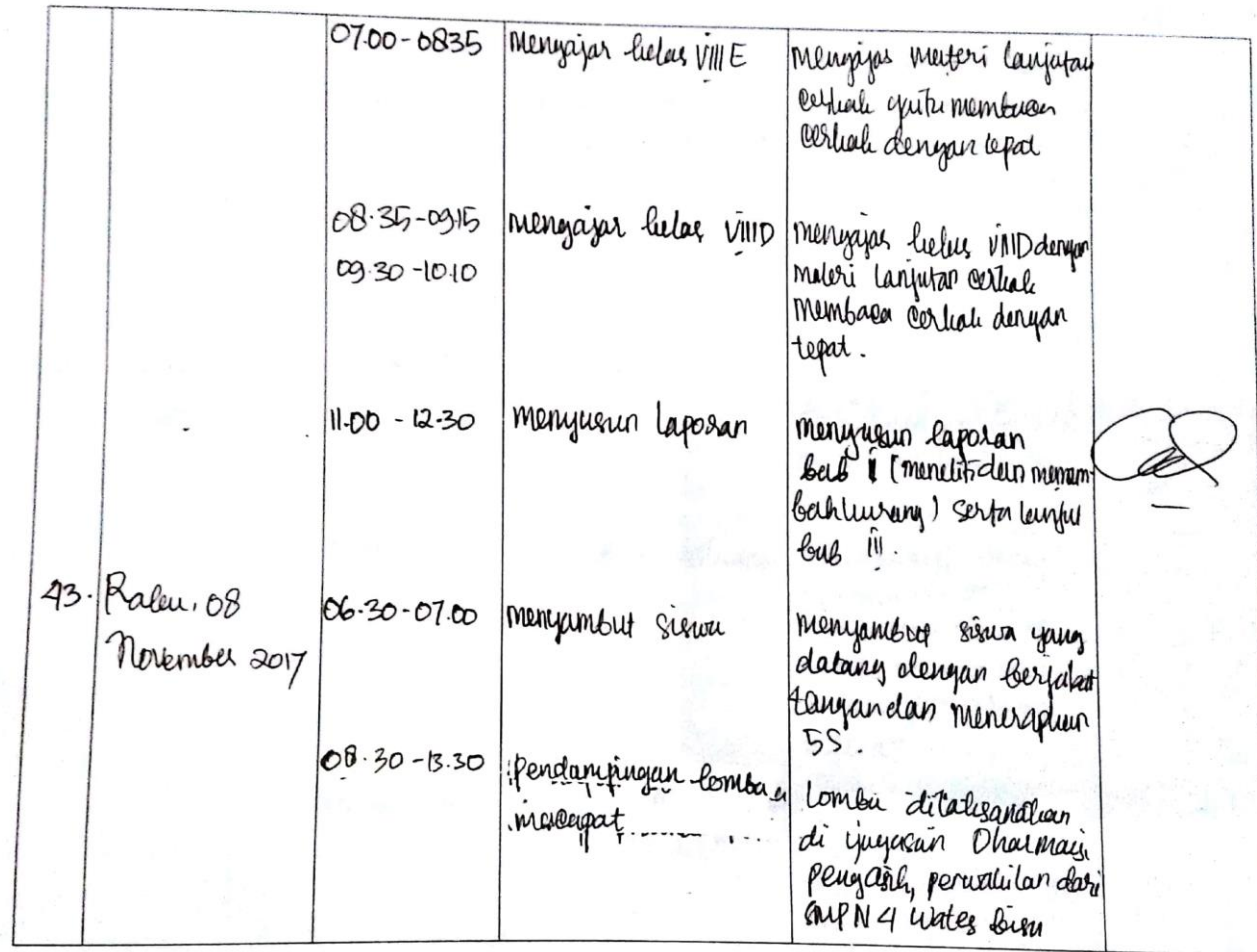 07.00 - 0835
Mengajar kelas VIII E
Mengajar materi lanjutan
cerkak yaitu membaca
cerkak dengan tepat
08.35 - 09.15
09.30 - 10.10
Mengajar kelas VIII D
Mengajar kelas VIII D dengan
materi lanjutan cerkak
membaca cerkak dengan
tepat.
11.00 - 12.30
Menyusun laporan
Menyusun laporan
bab (meneliti dan menam-
bah kurang) serta lanjut
bab iii.
43.
Rabu, 08
November 2017
06.30 - 07.00
Menyambut siswa
Menyambut siswa yang
datang dengan berjabat
tangan dan menerapkan
5S.
08.30 - 13.30
Pendampingan lomba
macapat
Lomba dilaksanakan
di
Pengasih, perwakilan dari
SMP N 4 Wates bisa